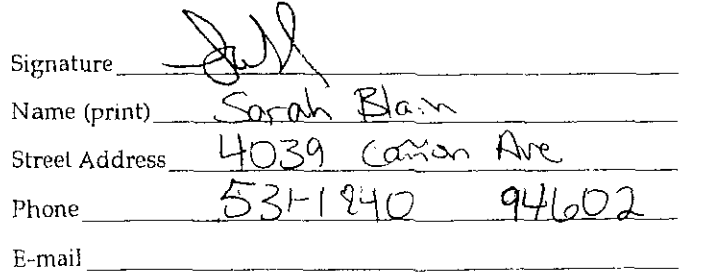 Signature
Name (print) Sarah Blain
Street Address 4039 Cañon Ave
Phone 531-1840 94602
E-mail